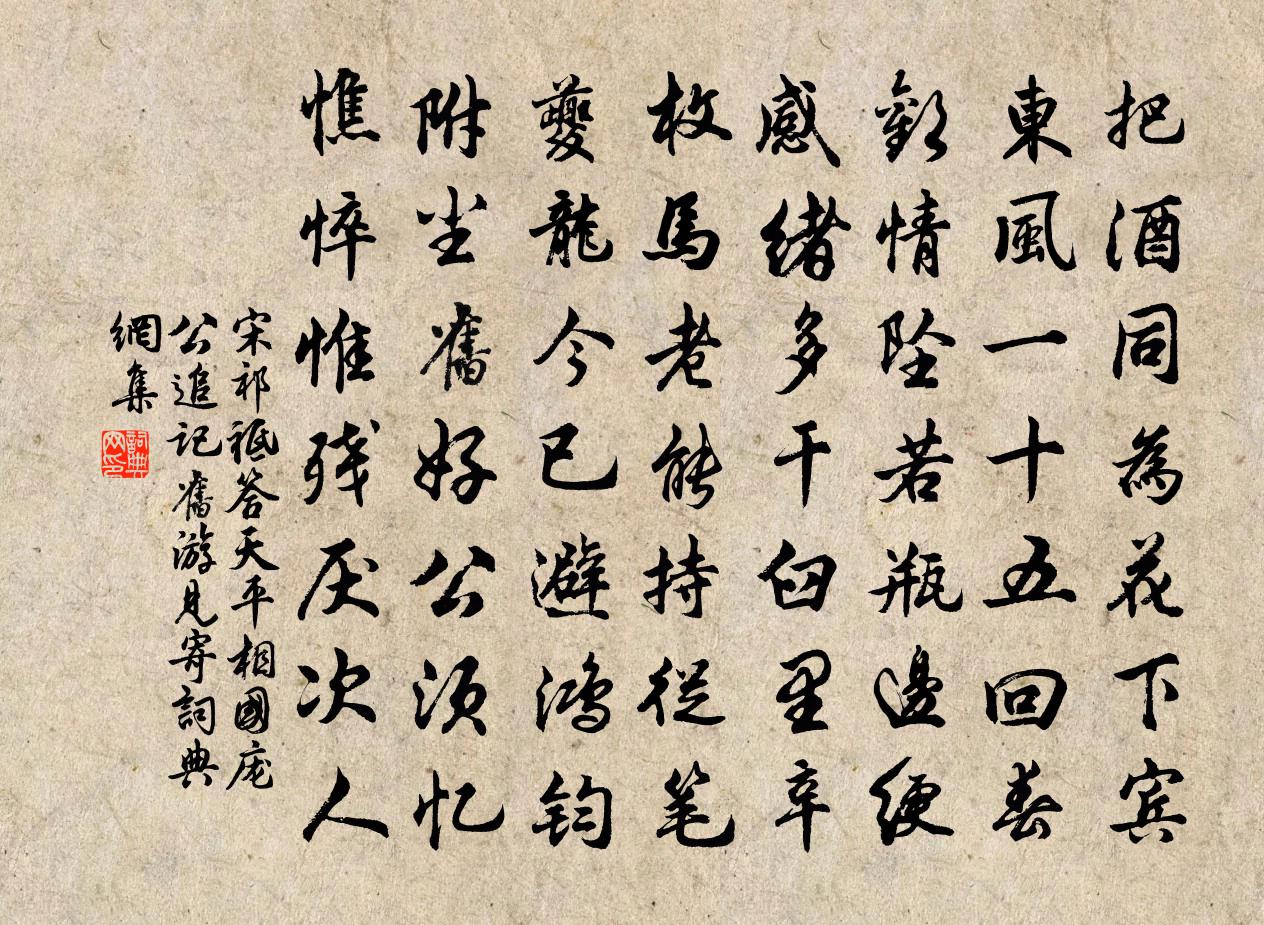 把酒同為花下賓
東風一十五回春
歡情坠若瓶邊綆
感緒多于臼里辛
枚馬老能持從笔
夔龍今已避鴻鈞
附尘舊好公須忆
憔悴惟殘厌次人
宋祁祗答天平相國庞
公追記舊游見寄詞典
網集
詞典网印